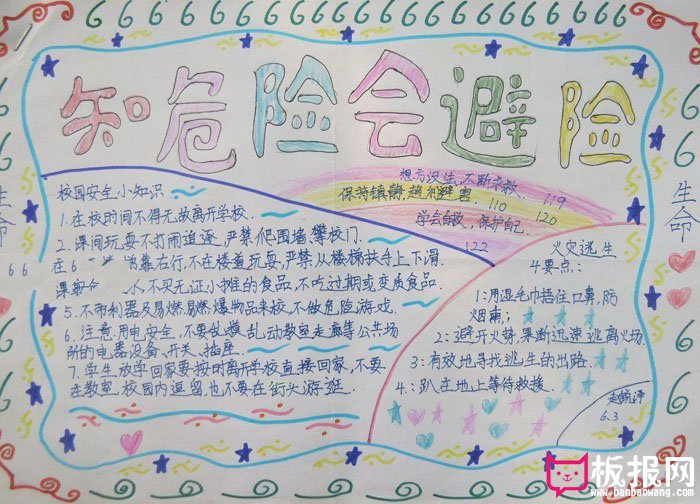 知危险会避险
生命
生命
想方设生,不断求救.
保持镇静,趋利避害.
学会自救,保护自己.
119
110
120
122
校园安全小知识
1.在校时间不得无故离开学校.
2.课间玩耍不打闹追逐,严禁爬围墙、攀校门.
靠右行,不在楼道玩耍,严禁从楼梯扶手上下滑.
不买无证小摊的食品,不吃过期或变质食品.
5.不带利器及易燃易燃爆物品来校,不做危险游戏.
6.注意用电安全,不要乱摸、乱动教室走廊等公共场
所的电器设备、开关、插座.
7.学生放学回家要按时离开学校直接回家,不要
在教室、校园内逗留,也不要在街头游逛.
火灾逃生
4要点:
1:用湿毛巾捂住口鼻,防
烟熏;
2:避开火势,果断迅速逃离火场.
3:有效地寻找逃生的出路.
4:趴在地上等待救援.
6.3
板报网
www.banbaowang.com